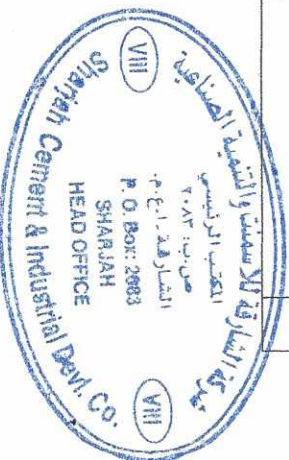 شركة الشارقة للأسمنت والتنمية الصناعية
VIII
المكتب الرئيسي
ص.ب: ٢٠٨٣
الشارقة .ا.ع.م.
P. O. BOX: 2083
SHARJAH
HEAD OFFICE
VIII
Sharjah Cement & Industrial Devl. Co.